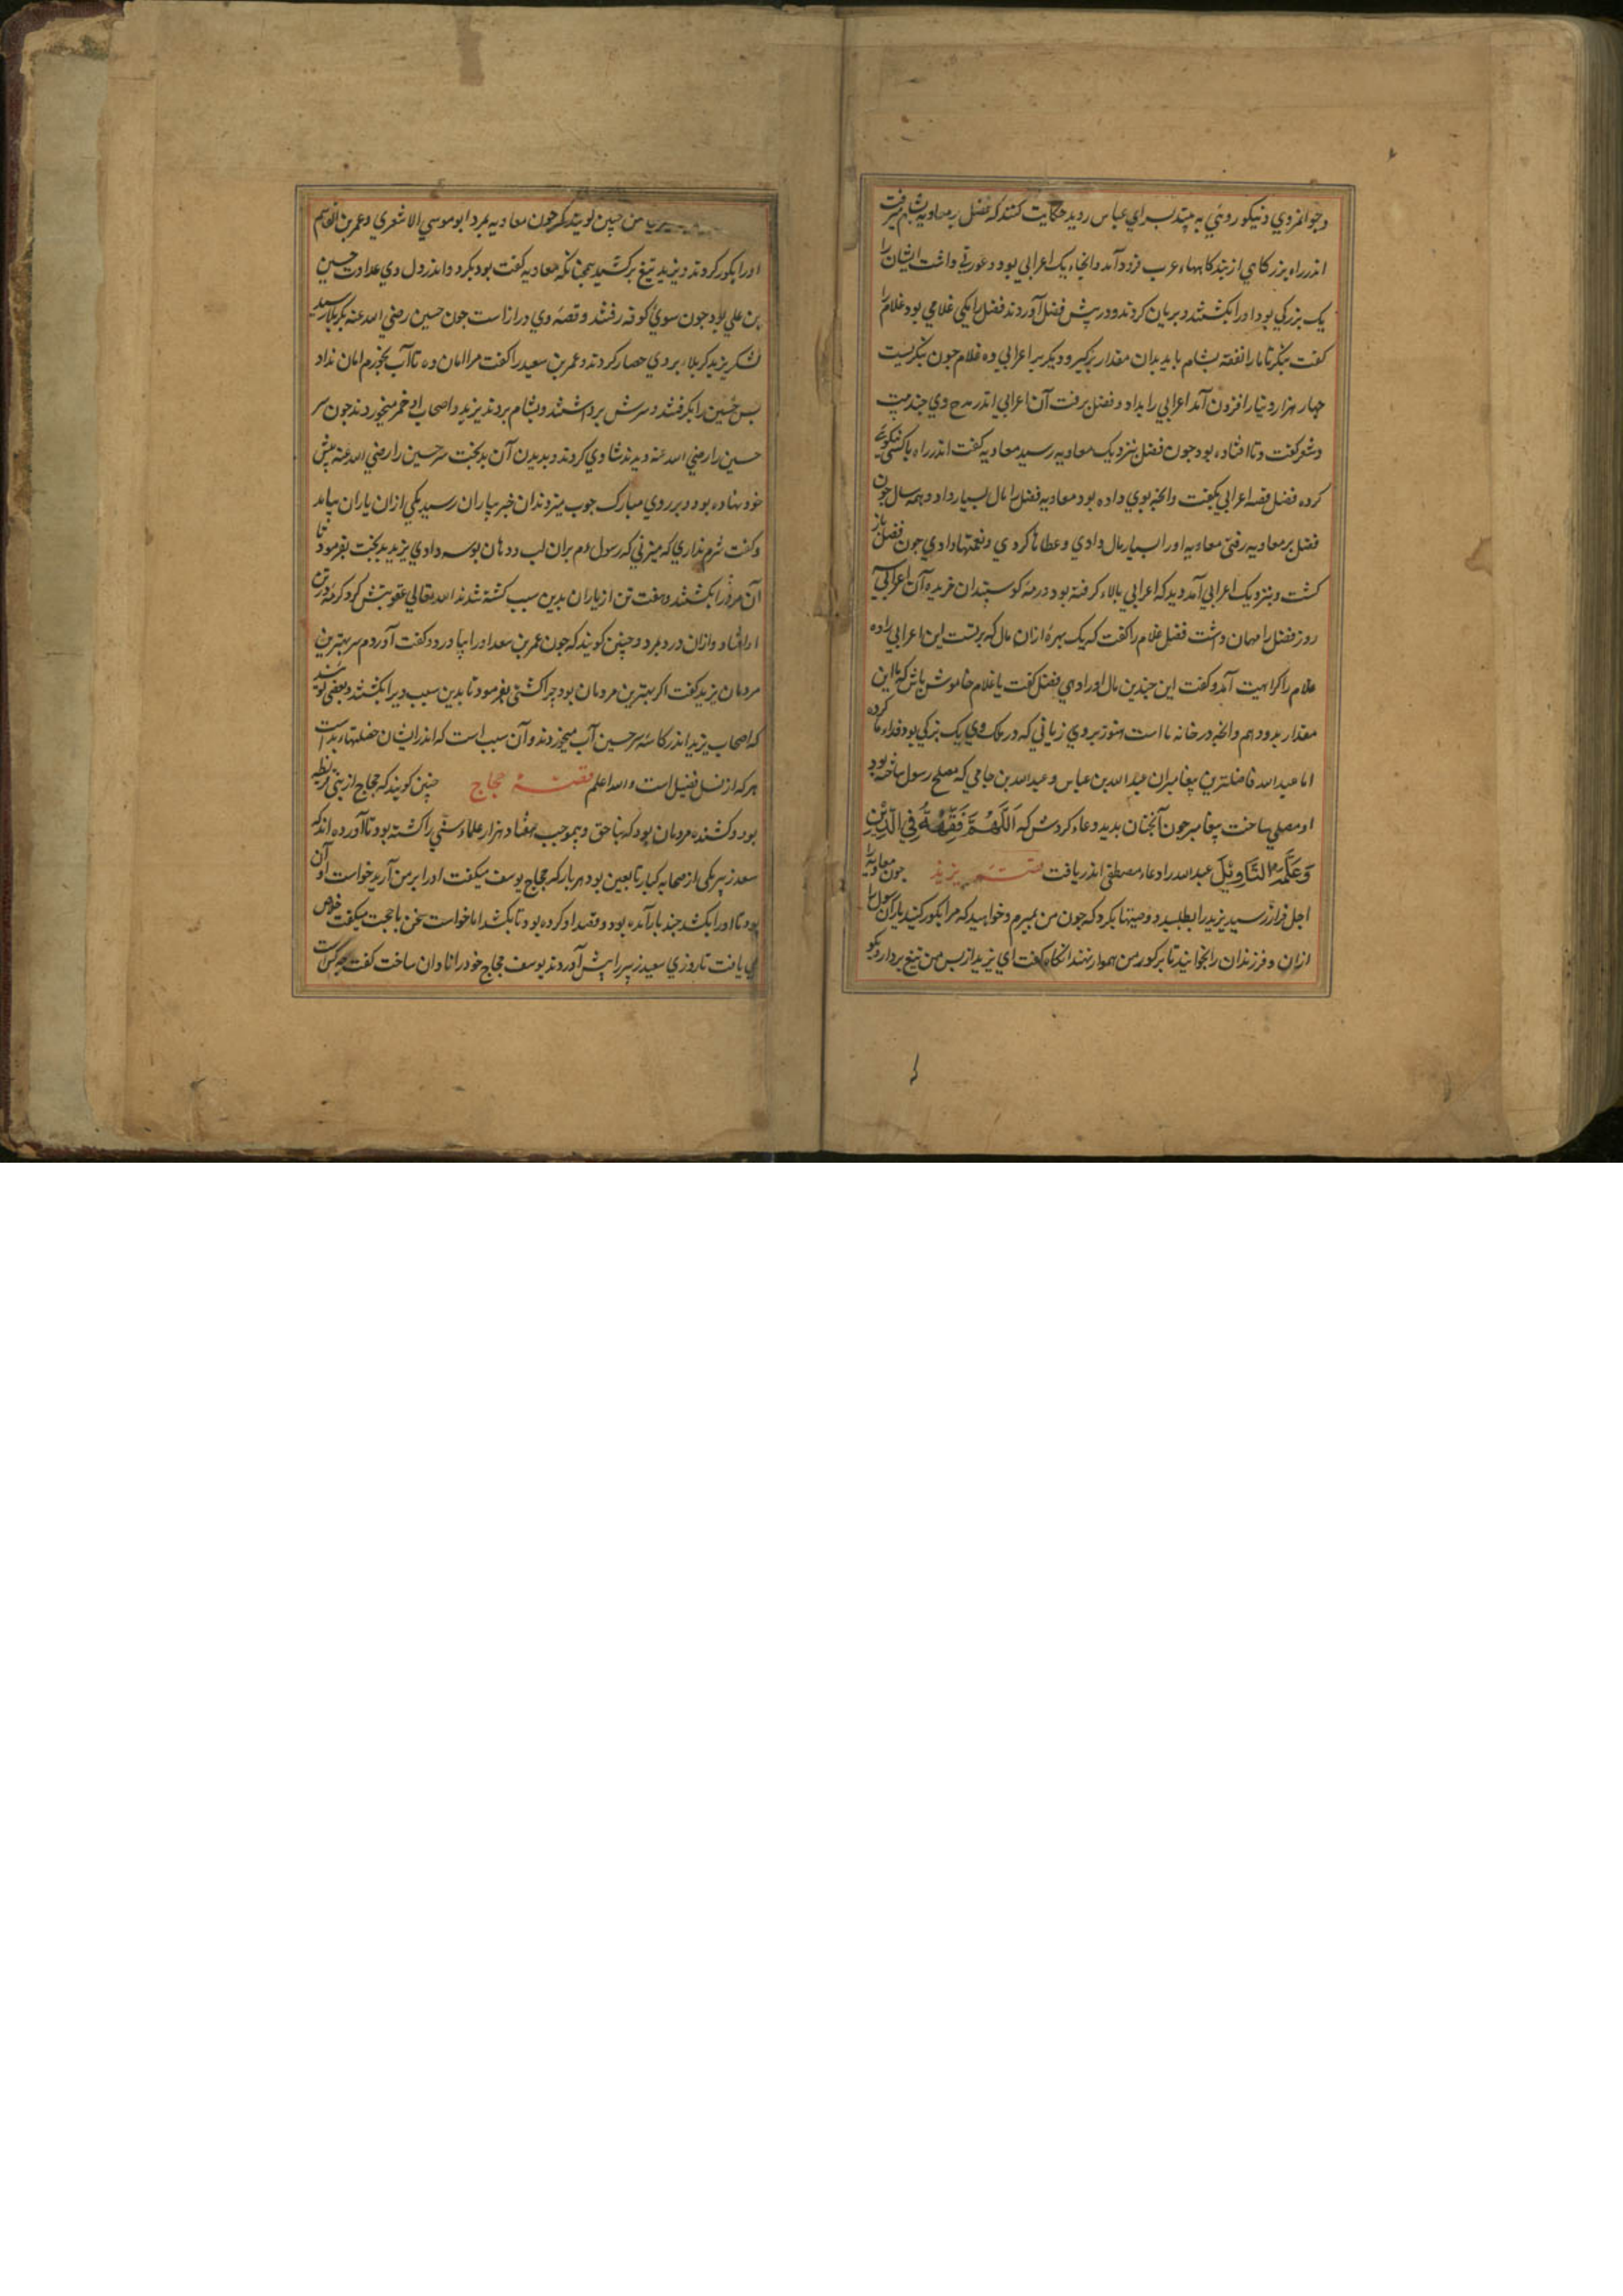 وجوانمردي ونيكو روئي به بيند بسراي عباس رويد حكايت كنند كه فضل بر معاويه بشام ميرفت
اندر راه بزركاهي از بندكاهها عرب فرود آمد وانجا يك اعرابي بود وعورتي داشت ايشان را
يك بزركي بود اورا بكشتند وبريان كردند ودر پيش فضل آوردند فضل را يكي غلامي بود غلام را
كفت بنكر تا مارا نفقه بشام بايد بدان مقدار بركير وديكر بر اعرابي ده غلام جون بنكريست
جهار هزار دينار افزون آمد اعرابي را بداد وفضل برفت آن اعرابي اندر مدح وي جند بيت
وشعر كفت وتا افتاده بود جون فضل بنزديك معاويه رسيد معاويه كفت اندر راه با كسي نيكوئي
كرده فضل قصه اعرابي بكفت وانجه بوي داده بود معاويه فضل را مال بسيار داد وهمه سال جون
فضل بر معاويه رفتي معاويه اورا بسيار مال دادي وعطاها كردي ونعمتها دادي جون فضل باز
كشت وبنزديك اعرابي آمد ديد كه اعرابي بالا كرفته بود ورمه كوسپندان خريده آن اعرابي
روز فضل را مهمان داشت فضل غلام را كفت كه يك بهره ازان مال كه برتست اين اعرابي را ده
غلام را كراهيت آمد وكفت اين جندين مال اورا دهي فضل كفت يا غلام خاموش باش كه با اين
مقدار بدو دهم وانجه در خانه ما است هنوز بروي زياني كه در ملك وي يك بزكي بود فداء ما كرده
اما عبد الله فاضلترين پيغامبران عبد الله بن عباس وعبد الله بن جامي كه مصلح رسول ساخته بود
او مصلي ساخت پيغامبر جون آنجنان بديد دعاء كردش كه اَللّهُمَّ فَقِّهْهُ فِي الدِّيْنِ
وَعَلِّمْهُ التَّاوِيْلَ عبد الله را دعاء مصطفي اندر يافت قصه يزيد جون معاويه را
اجل فراز رسيد يزيد را بطلبيد ووصيتها بكرد كه جون من بميرم وخواهيد كه مرا بكور كنيد ياران رسول را
ازان وفرزندان را بخوانيد تا بر كور من هموار نهند انكاه كفت اي يزيد از پس من تيغ بردار وبكو
من جنين كويند كه جون معاويه بمرد ابو موسي الاشعري وعمر بن القاسم
اورا بكور كردند ويزيد تيغ بركشيد همجنانكه معاويه كفت بود بكرد واندر دل وي عداوت حسين
بن علي بود جون سوي كوفه رفتند وقصه وي دراز است جون حسين رضي الله عنه بكربلا رسيد
لشكر يزيد كربلا بروي حصار كردند وعمر بن سعيد را كفت مرا امان ده تا آب بخورم امان نداد
بس حسين را بكرفتند وسرش برداشتند وبشام بردند يزيد واصحاب او خمر ميخوردند جون سر
حسين را رضي الله عنه ديدند شادي كردند وبديدن آن بدبخت سر حسين را رضي الله عنه پيش
خود نهاده بود وبر روي مبارك جوب ميزد ندان خبر بياران رسيد يكي ازان ياران بيامد
وكفت شرم نداري كه ميزني كه رسول دم بران لب ودهان بوسه دادي يزيد بدبخت بفرمود تا
آن مرد را بكشتند وهفت تن از ياران بدين سبب كشته شدند الله تعالي عقوبتش كرد كرمه در تن
او افتاد وازان درد بمرد وجنين كويند كه جون عمر بن سعد اورا بياورد وكفت آوردم سر بهترين
مردمان يزيد كفت اكر بهترين مردمان بود جرا كشتي بفرمود تا بدين سبب ويرا بكشتند وبعضي كويند
كه اصحاب يزيد اندر كاسه سر حسين آب ميخوردند وآن سبب است كه اندر ايشان خصلتهاء بد است
هر كه از نسل فضيل است والله اعلم قصه حجاج جنين كويند كه حجاج از بني قريظه
بود وكشنده مردمان بود كه بناحق وبموجب هفتاد هزار علماء وسني را كشته بود تا آورده اند كه
سعد زبير يكي از صحابه كبار تابعين بود هر بار كه حجاج يوسف ميكفت اورا بر من آريد خواست او آن
بود تا اورا بكشد جند بار آمده بود وقصد او كرده بود تا بكشد اما خواست سخن با حجت ميكفت خلاص
مي يافت تا روزي سعيد زبير را پيش آوردند يوسف حجاج خود را نادان ساخت كفت جه كس است